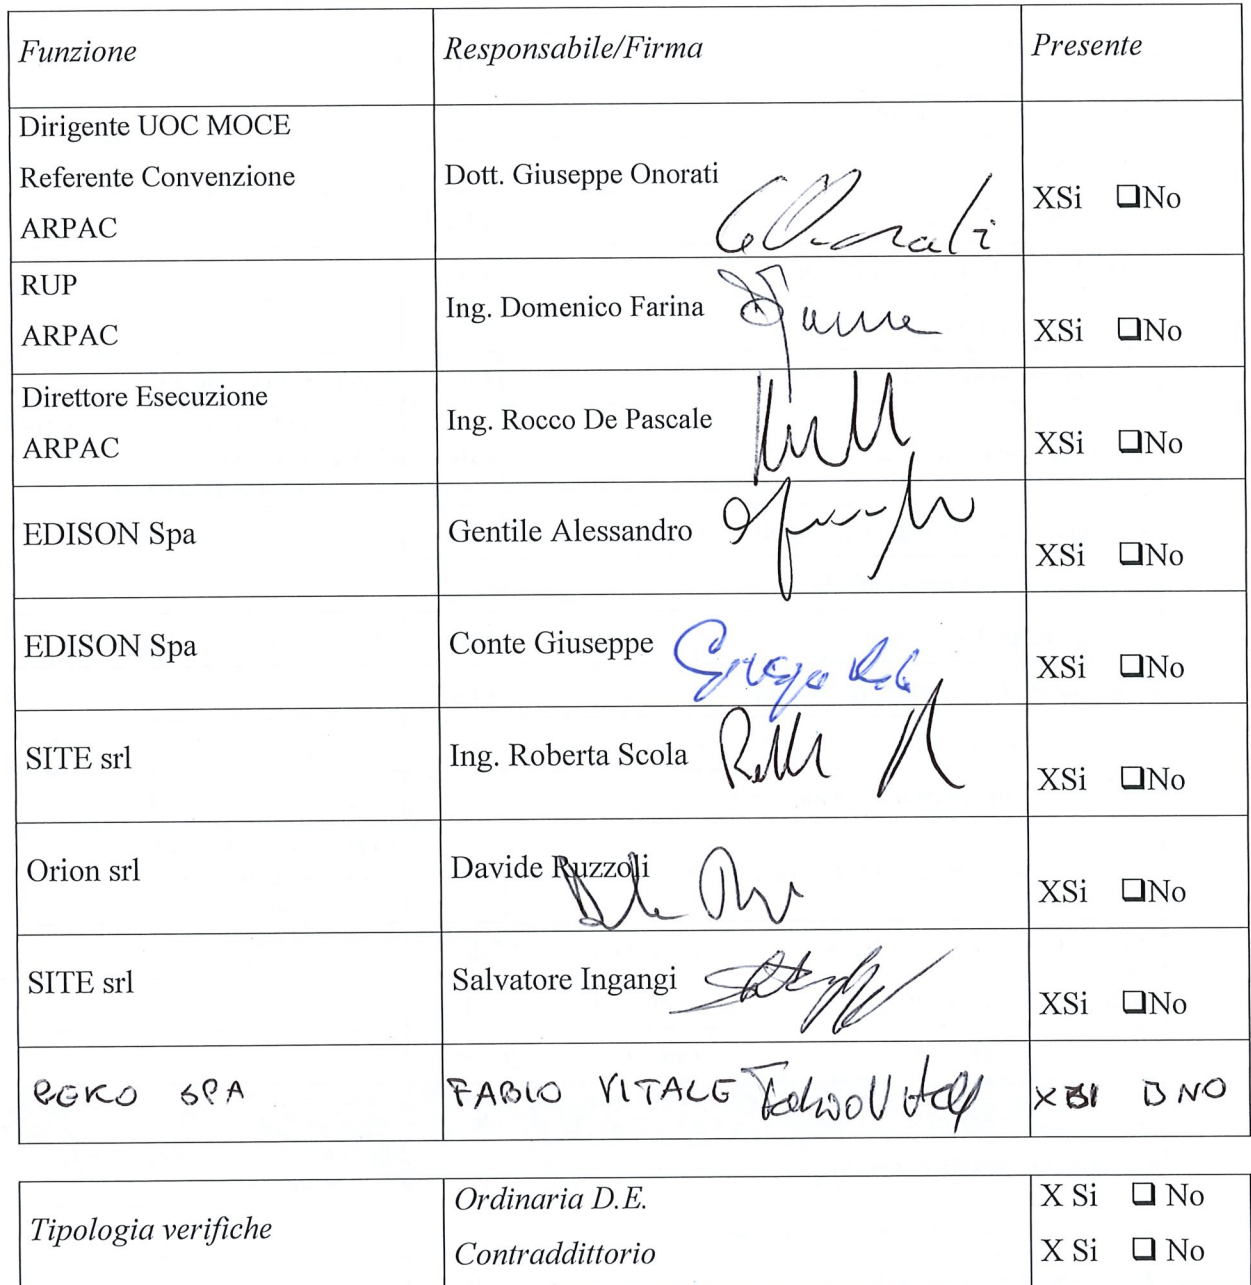 Funzione Responsabile/Firma Presente
Dirigente UOC MOCE
Referente Convenzione
ARPAC
Dott. Giuseppe Onorati
XSi ❑No
RUP
ARPAC
Ing. Domenico Farina
XSi ❑No
Direttore Esecuzione
ARPAC
Ing. Rocco De Pascale
XSi ❑No
EDISON Spa
Gentile Alessandro
XSi ❑No
EDISON Spa
Conte Giuseppe
XSi ❑No
SITE srl
Ing. Roberta Scola
XSi ❑No
Orion srl
Davide Ruzzoli
XSi ❑No
SITE srl
Salvatore Ingangi
XSi ❑No
SPA
FABIO VITALE Fabio Vitale
X SI NO
Tipologia verifiche
Ordinaria D.E.
X Si ❑ No
Contraddittorio
X Si ❑ No